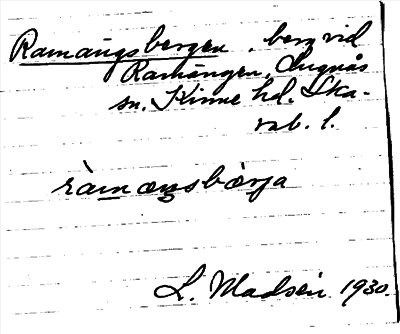 Ramängsbergen, berg vid
Ramängen, Lugnås
sn. Kinne hd. Ska-
rab. l.
ràmænsbærja
L. Madsén 1930.